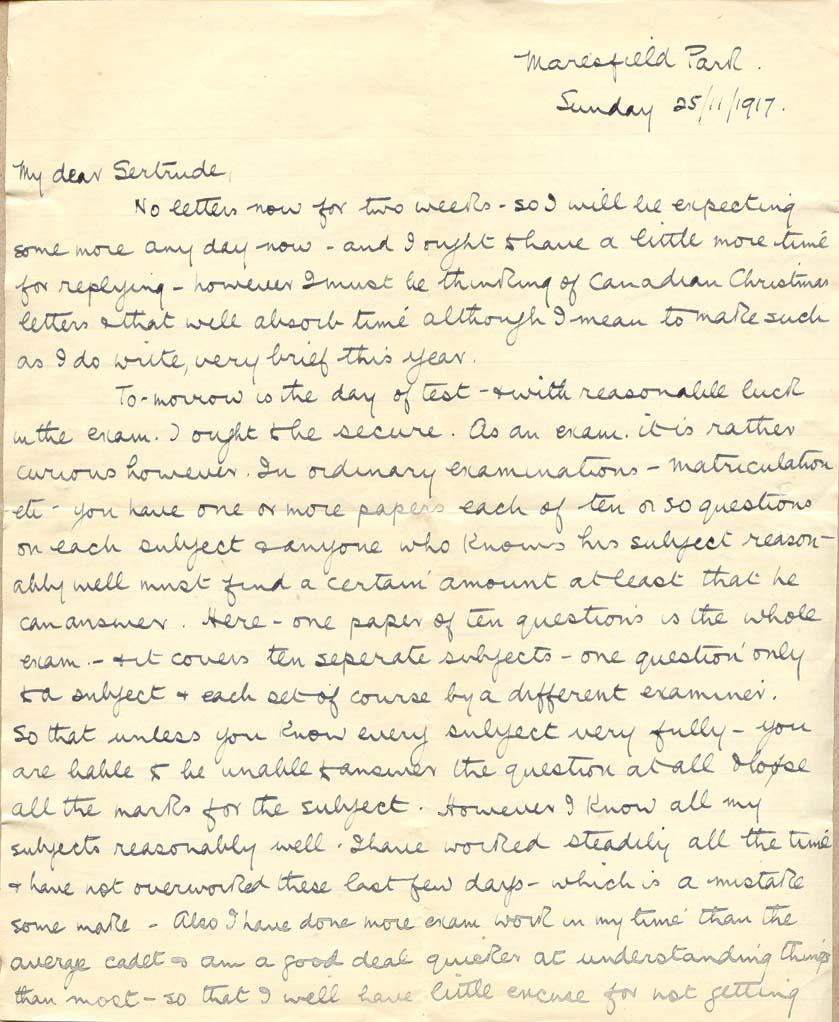 Maresfield Park.
Sunday 25/11/1917.
My dear Gertrude,
No letters now for two weeks - so I will be expecting
some more any day now - and I ought to have a little more time
for replying - however I must be thinking of Canadian Christmas
letters & that will absorb time although I mean to make such
as I do write, very brief this year.
To-morrow is the day of test - & with reasonable luck
in the exam. I ought to be secure. As an exam. it is rather
curious however. In ordinary examinations - matriculation
etc - you have one or more papers each of ten or so questions
on each subject & anyone who knows his subject reason-
ably well must find a certain amount at least that he
can answer. Here - one paper of ten questions is the whole
exam. - & it covers ten seperate subjects - one question only
to a subject & each set of course by a different examiner.
So that unless you know every subject very fully - you
are liable to be unable to answer the question at all & loose
all the marks for the subject. However I know all my
subjects reasonably well. I have worked steadily all the time
& have not overworked these last few days - which is a mistake
some make - Also I have done more exam work in my time than the
average cadet & am a good deal quicker at understanding things
than most - so that I will have little excuse for not getting